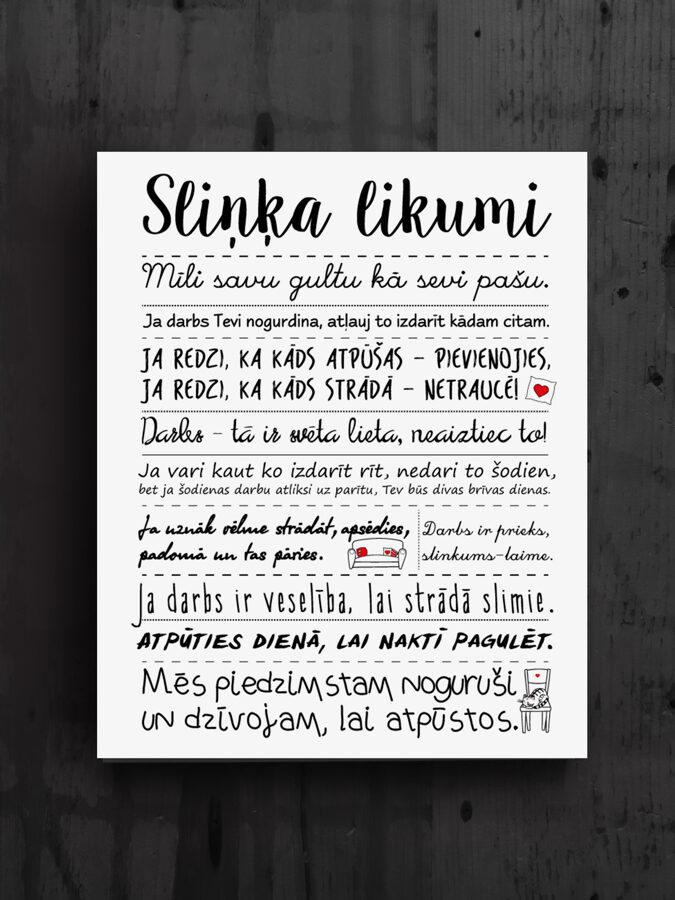 Sliņķa likumi
Mīli savu gultu kā sevi pašu.
Ja darbs Tevi nogurdina, atļauj to izdarīt kādam citam.
JA REDZI, KA KĀDS ATPŪŠAS – PIEVIENOJIES,
JA REDZI, KA KĀDS STRĀDĀ – NETRAUCĒ!
Darbs – tā ir svēta lieta, neaiztiec to!
Ja vari kaut ko izdarīt rīt, nedari to šodien,
bet ja šodienas darbu atliksi uz parītu, Tev būs divas brīvas dienas.
Ja uznāk vēlme strādāt, apsēdies,
padomā un tas pāries.
Darbs ir prieks,
slinkums-laime.
Ja darbs ir veselība, lai strādā slimie.
ATPŪTIES DIENĀ, LAI NAKTĪ PAGULĒT.
Mēs piedzimstam noguruši
un dzīvojam, lai atpūstos.